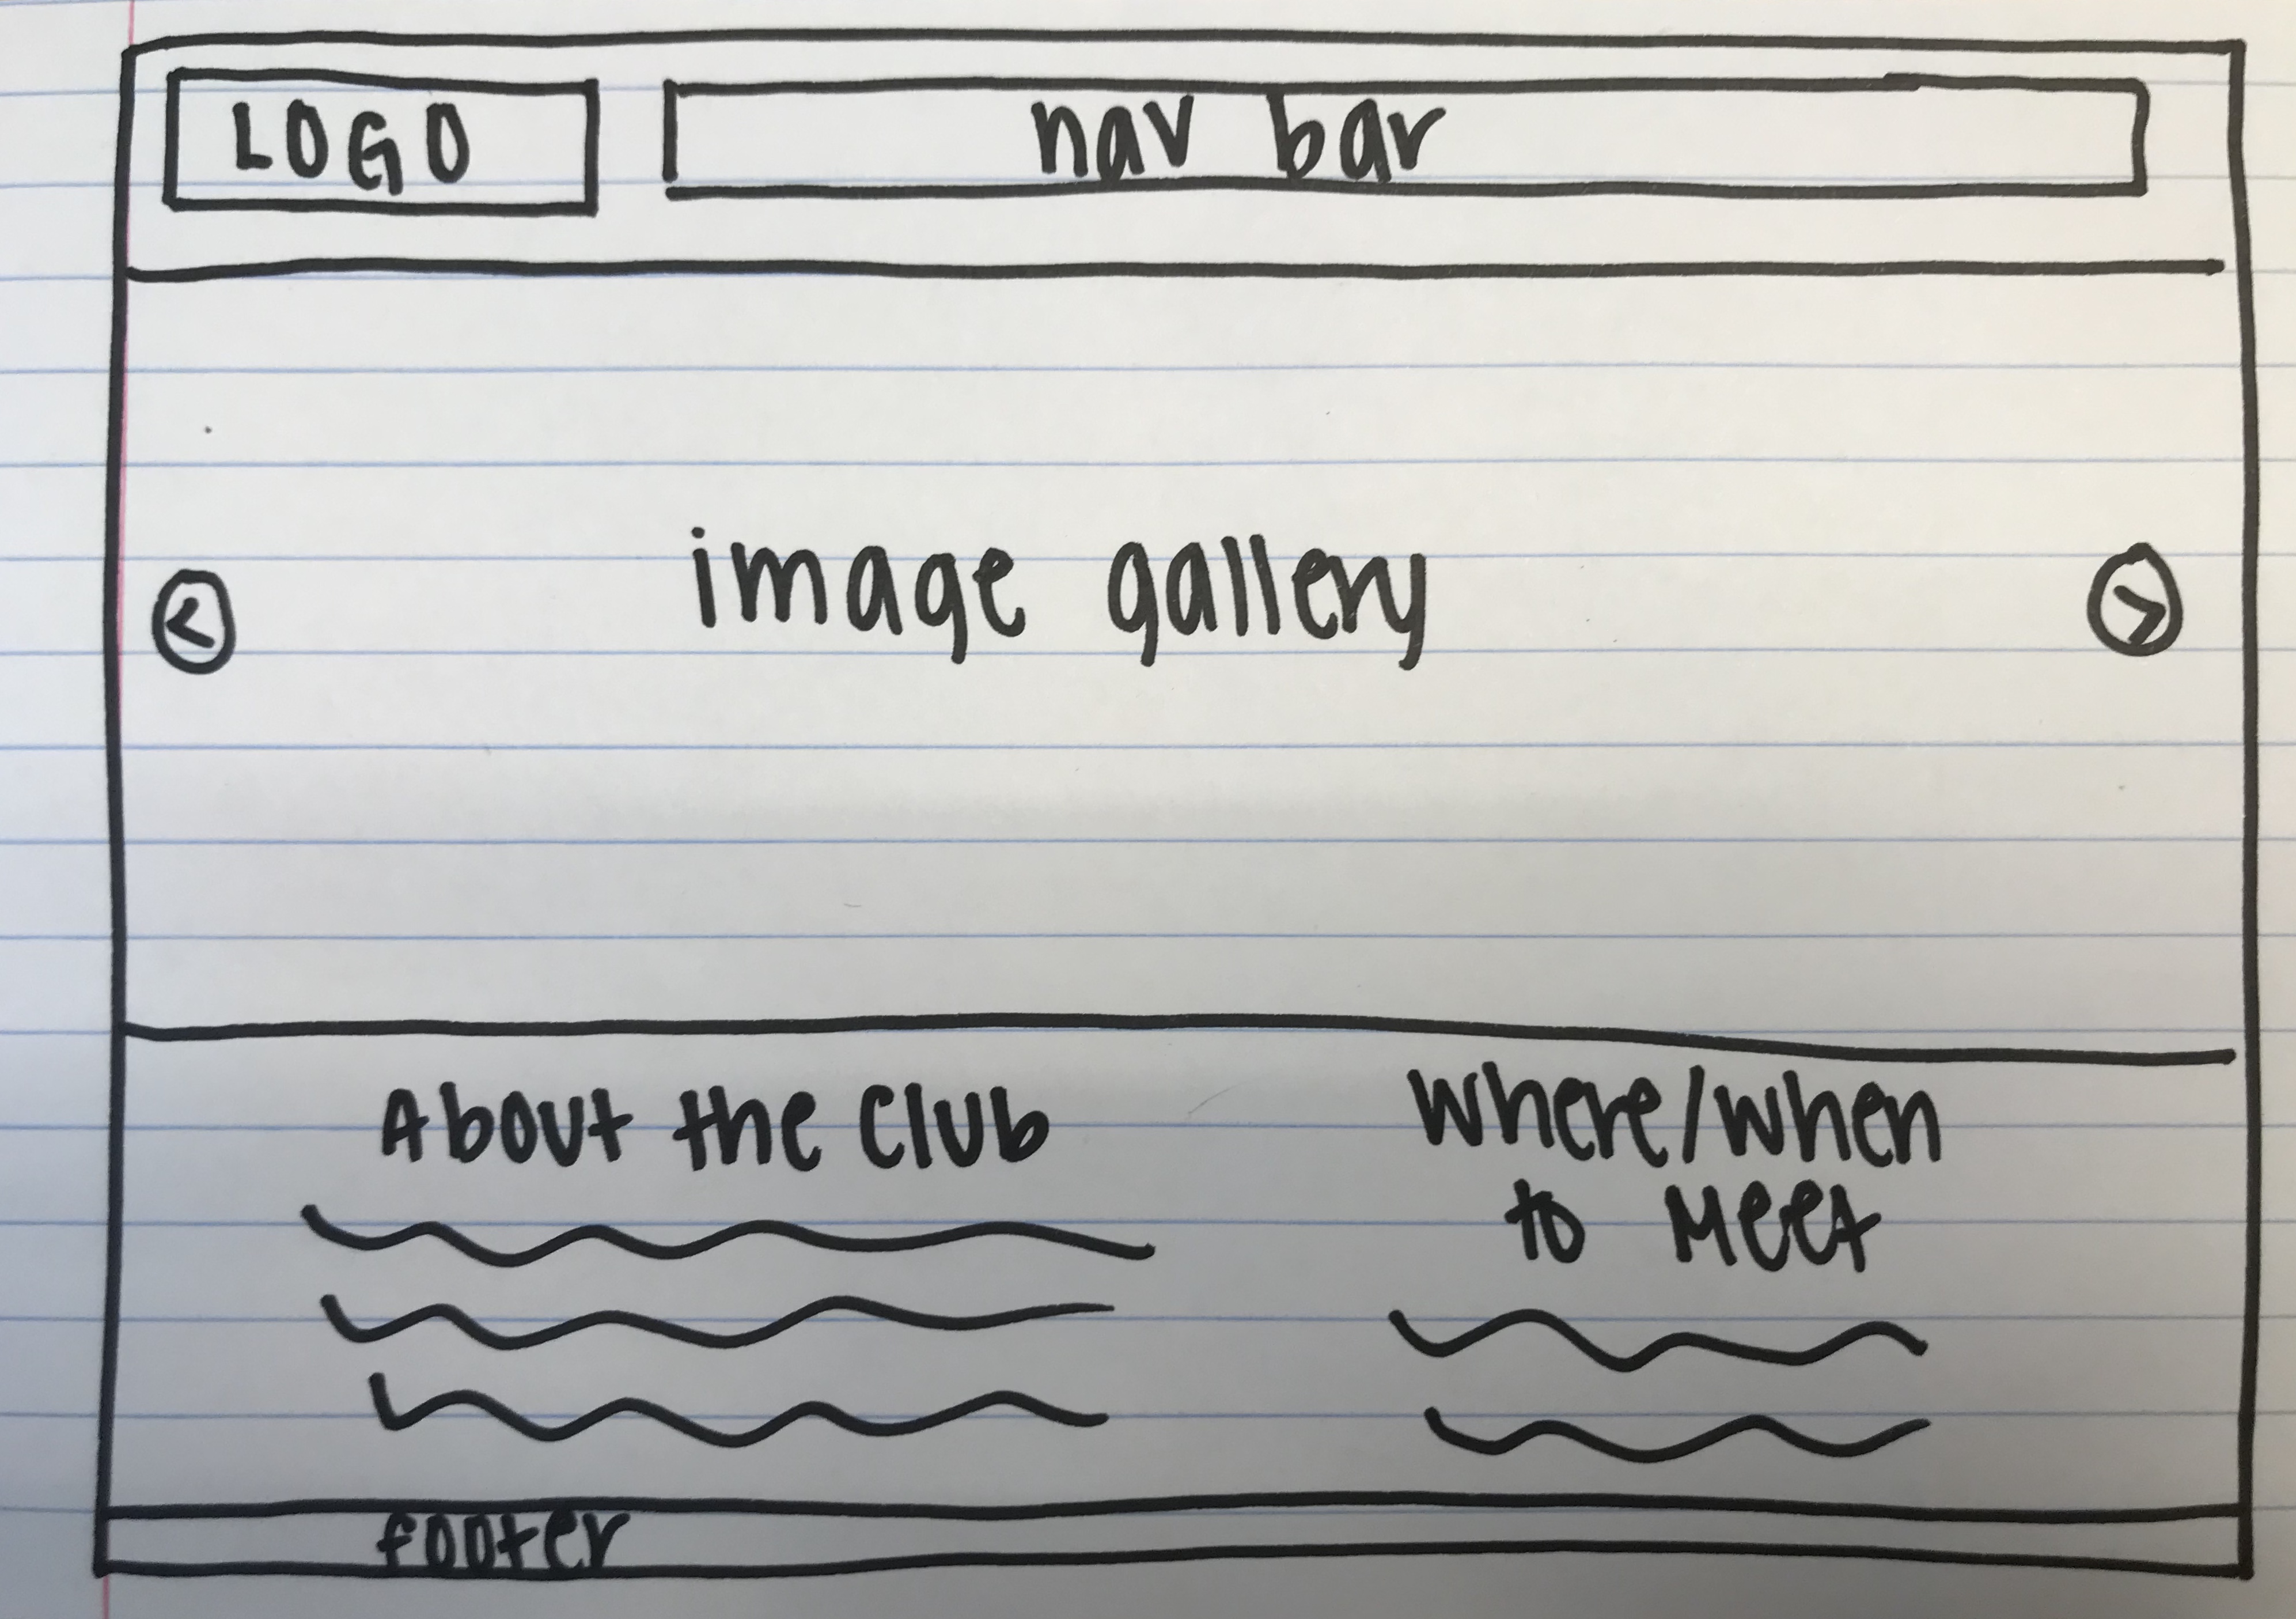 LOGO
nav bar
image gallery
<
>
About the Club
Where/When
to Meet
footer